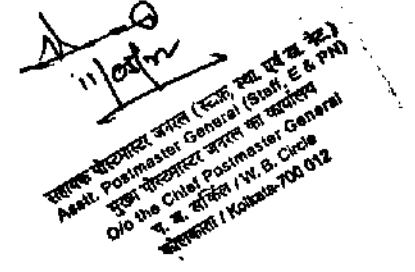 11/05/12
सहायक पोस्टमास्टर जनरल (स्टाफ, स्था. एवं पी. नेट.)
Asstt. Postmaster General (Staff, E & PN)
मुख्य पोस्टमास्टर जनरल का कार्यालय
O/o the Chief Postmaster General
प. बं. सर्किल / W. B. Circle
कोलकाता / Kolkata-700 012